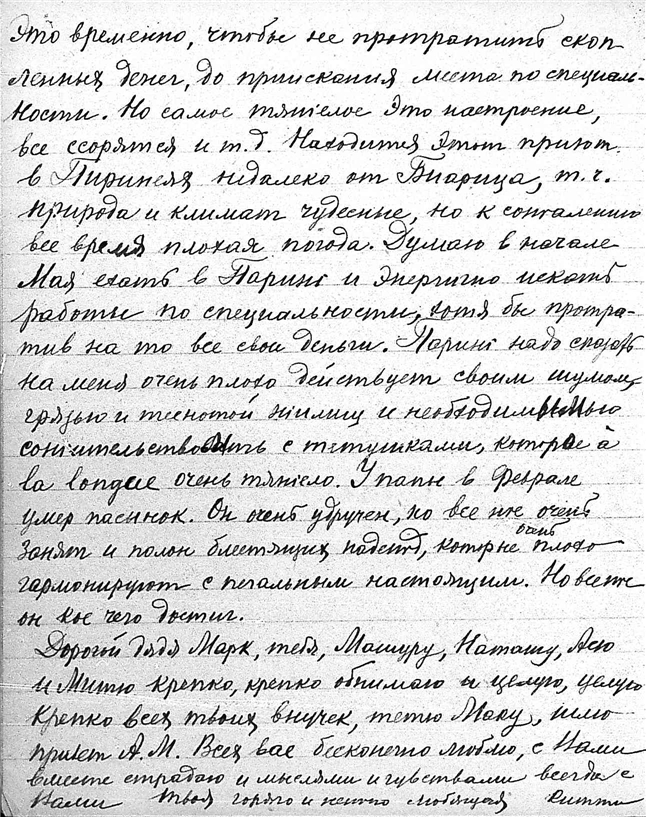 Это временно, чтобы не протратить скоп
ленных денег, до приискания места по специаль-
ности. Но самое тяжелое это настроение,
все ссорятся и т.д. Находится этот приют
в Пиринеях недалеко от Биарица, т.ч.
природа и климат чудесные, но к сожалению
все время плохая погода. Думаю в начале
Мая ехать в Париж и энергично искать
работы по специальности, хотя бы протра-
тив на то все свои деньги. Париж надо сказать
на меня очень плохо действует своим шумом,
грязью и теснотой жилищ и необходимостью
сожительствовать с тетушками, которое à
la longue очень тяжело. У папы в Феврале
умер пасынок. Он очень удручен, но все же очень
занят и полон блестящих надежд, которые очень плохо
гармонируют с печальным настоящим. Но все же
он кое чего достиг.
Дорогой дядя Марк, тебя, Машуру, Наташу, Асю
и Митю крепко, крепко обнимаю и целую, целую
крепко всех твоих внучек, тетю Маку, шлю
привет А.М. Всех вас бесконечно люблю, с Вами
вместе страдаю и мыслями и чувствами всегда с
Вами Твоя горячо и нежно любящая Китти